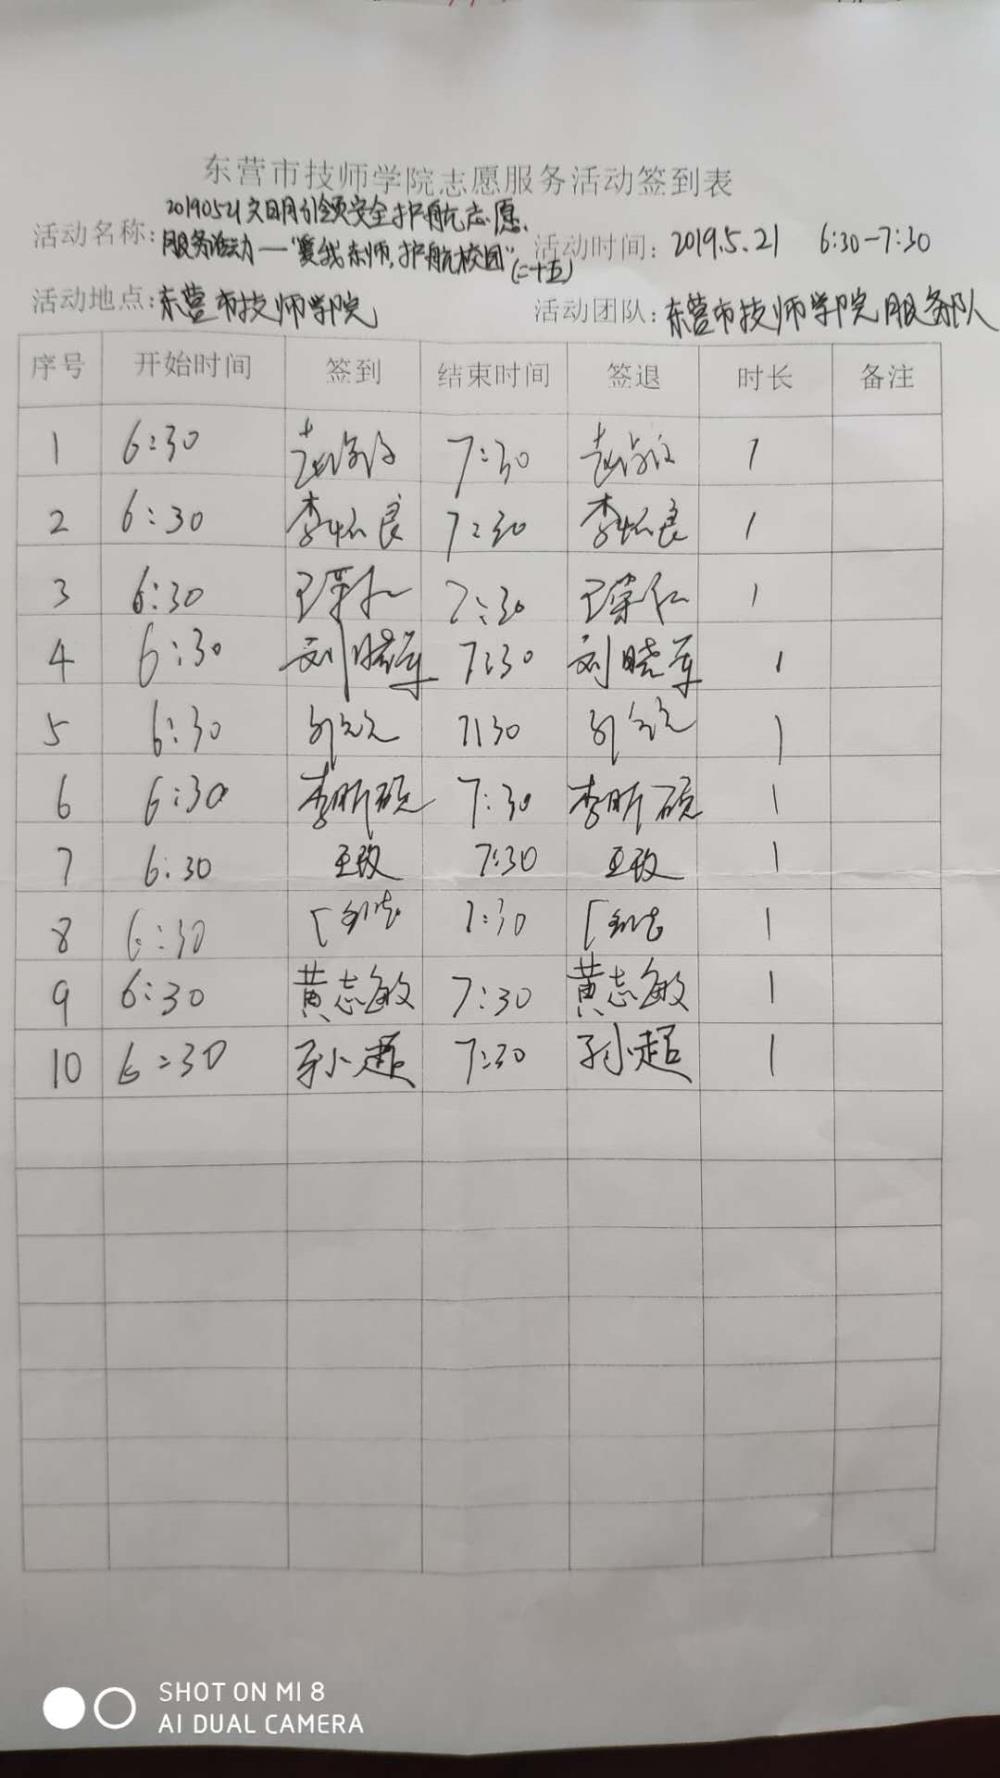 东营市技师学院志愿服务活动签到表
活动名称：20190521文明引领安全护航志愿
服务活动—"爱我东师，护航校园"（二十五）
活动时间：2019.5.21 6:30-7:30
活动地点：东营市技师学院
活动团队：东营市技师学院服务队
序号 开始时间 签到 结束时间 签退 时长 备注
1 6:30 7:30 1
2 6:30 李怀良 7:30 李怀良 1
3 6:30 王荣仁 7:30 王荣仁 1
4 6:30 刘晓军 7:30 刘晓军 1
5 6:30 7:30 1
6 6:30 李昕硕 7:30 李昕硕 1
7 6:30 王玫 7:30 王玫 1
8 6:30 7:30 1
9 6:30 黄志敏 7:30 黄志敏 1
10 6:30 孙小超 7:30 孙小超 1
SHOT ON MI 8
AI DUAL CAMERA